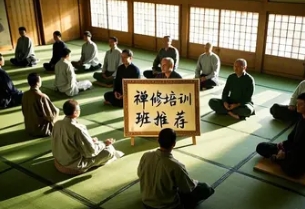 禅修培训
班推荐